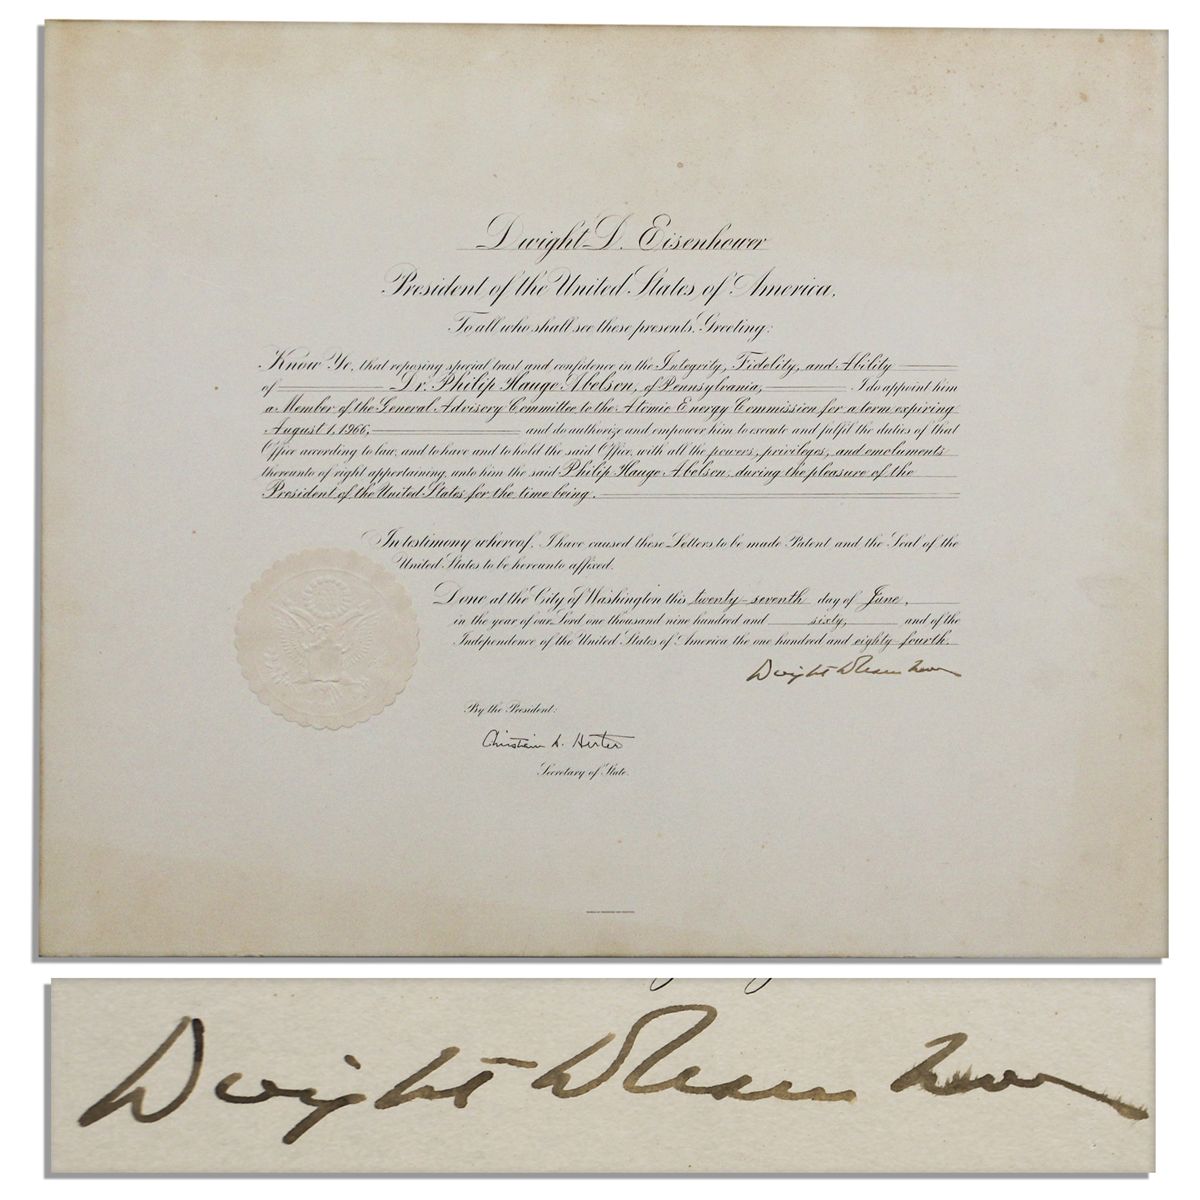 Dwight D. Eisenhower
President of the United States of America.
To all who shall see these presents, Greeting:
Know Ye, that reposing special trust and confidence in the Integrity, Fidelity, and Ability
of Dr. Philip Hauge Abelson, of Pennsylvania, I do appoint him
a Member of the General Advisory Committee to the Atomic Energy Commission for a term expiring
August 1, 1966, and do authorize and empower him to execute and fulfil the duties of that
Office according to law, and to have and to hold the said Office, with all the powers, privileges, and emoluments
thereunto of right appertaining, unto him the said Philip Hauge Abelson, during the pleasure of the
President of the United States for the time being.
In testimony whereof, I have caused these Letters to be made Patent and the Seal of the
United States to be hereunto affixed.
Done at the City of Washington this twenty-seventh day of June,
in the year of our Lord one thousand nine hundred and sixty, and of the
Independence of the United States of America the one hundred and eighty-fourth.
Dwight D Eisenhower
By the President:
Christian A. Herter
Secretary of State.
Dwight D Eisenhower